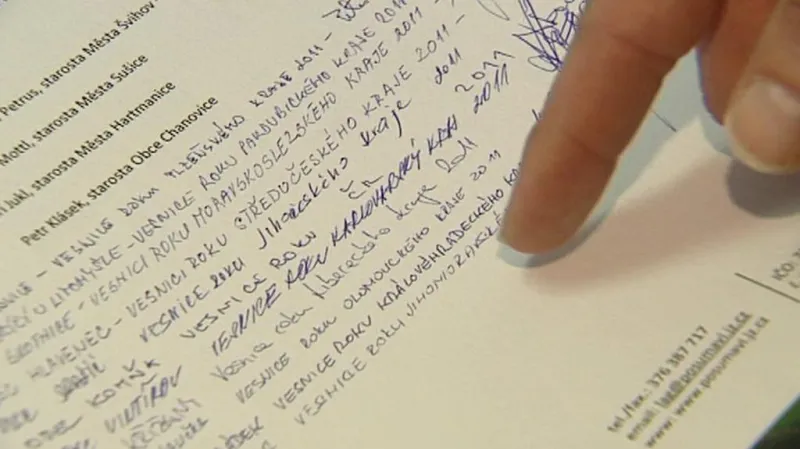 Petrus, starosta Města Švihov
Mottl, starosta Města Sušice
Jukl, starosta Města Hartmanice
Petr Klásek, starosta Obce Chanovice
- VESNICE ROKU PLZEŇSKÉHO KRAJE 2011 -
U LITOMYŠLE - VESNICE ROKU PARDUBICKÉHO KRAJE 2011
- VESNICI ROKU MORAVSKOSLEZSKÉHO KRAJE 2011 -
HLAVENEC - VESNICI ROKU STŘEDOČESKÉHO KRAJE 2011 -
VESNICE ROKU Jihočeského kraje 2011
KOMŇA VESNICE ROKU ČR 2011
VINTÍŘOV VESNICE ROKU KARLOVARSKÝ KRAJ 2011
KŘIŽANY Vesnice roku Libereckého kraje 2011
VESNICE ROKU OLOMOUCKÉHO KRAJE 2011
VESNICE ROKU KRÁLOVÉHRADECKÉHO
VESNICE ROKU JIHOMORAVSKÉ
IČO:
tel./fax.: 376 387 717
email: iag@posumavi.ja.cz
www: www.posumavi.ja.cz